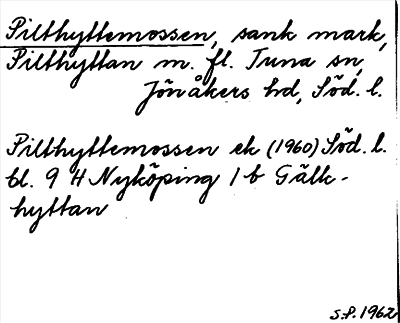 Pilthyttemossen, sank mark,
Pilthyttan m. fl. Tuna sn,
Jönåkers hd, Söd. l.
Pilthyttemossen ek (1960) Söd. l.
bl. 9 H Nyköping 1 b Gälk-
hyttan
S.P. 1962